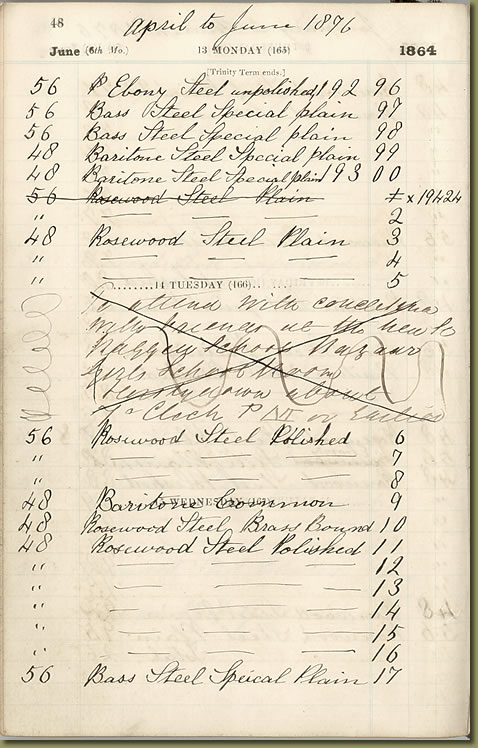 48
April to June 1876
June (6th Mo.) 13 MONDAY (165) 1864
[Trinity Term ends.]
56 Ebony Steel unpolished 192 96
56 Bass Steel Special plain 97
56 Bass Steel Special plain 98
48 Baritone Steel Special plain 99
48 Baritone Steel Special plain 193 00
56 Rosewood Steel Plain 1 x 19424
" — — — 2
48 Rosewood Steel Plain 3
" — — — 4
" — — — 5
14 TUESDAY (166)
To attend with concertina
with at the
School Bazaar
Girls School Room
down about
7 o Clock P or Earlier
56 Rosewood Steel Polished 6
" — — — 7
" — — — 8
WEDNESDAY
48 Baritone Common 9
48 Rosewood Steel Brass Bound 10
48 Rosewood Steel Polished 11
" — — — 12
" — — — 13
" — — — 14
" — — — 15
" — — — 16
56 Bass Steel Speical Plain 17